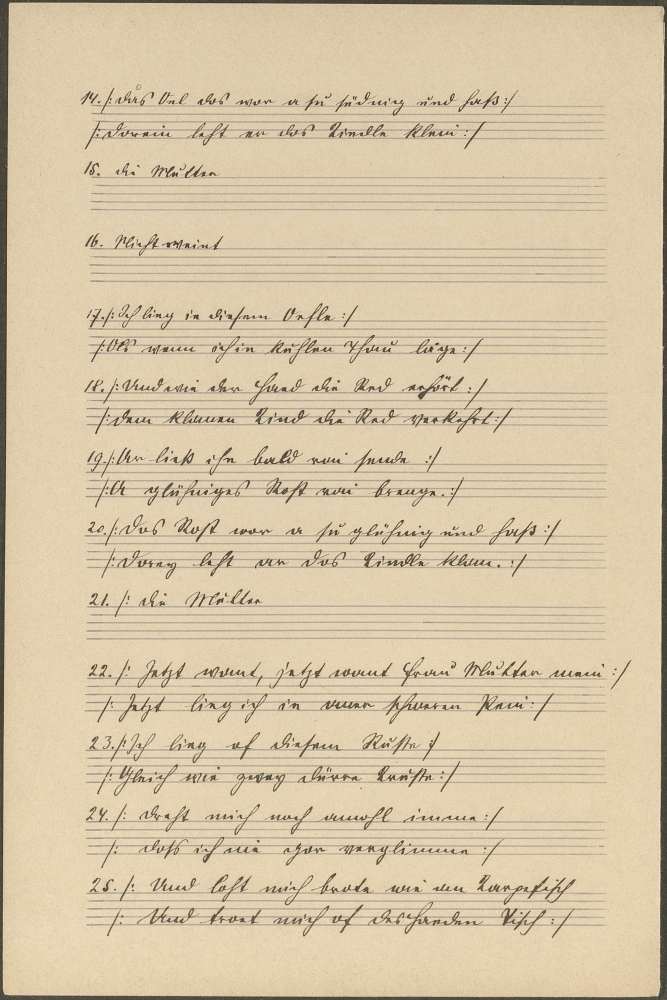 14. /: das Oel dos wor a su südnig und haß :/
/: Dorein leht er dos Kindle klein :/
15. die Mutter
16. Nicht weint
17. /: Ich lieg in diesem Oefle :/
/: Als wenn ich in kühlen Thau läge :/
18. /: Und wie der Haed die Red erhört :/
/: dem klanen Kind die Red verkehrt :/
19. /: Ar ließ ihn bald nei sende :/
/: A glühniges Rost nei brenge. :/
20. /: Dos Rost wor a su glühnig und haß :/
/: Dorey leht ar dos Kindle klan. :/
21. /: die Mutter
22. /: Jetzt want, jetzt want Frau Mutter mein :/
/: Jetzt lieg ich in aner schweren Pein :/
23. /: Ich lieg of diesem Ruste :/
/: Gleich wie zwey dürre Brüste :/
24. /: Dreht mich noch amohl imme :/
/: doß ich nie gor verglimme :/
25. /: Und loßt mich brote wie an Karpefisch
/: Und troet mich of des Haeden Tisch :/